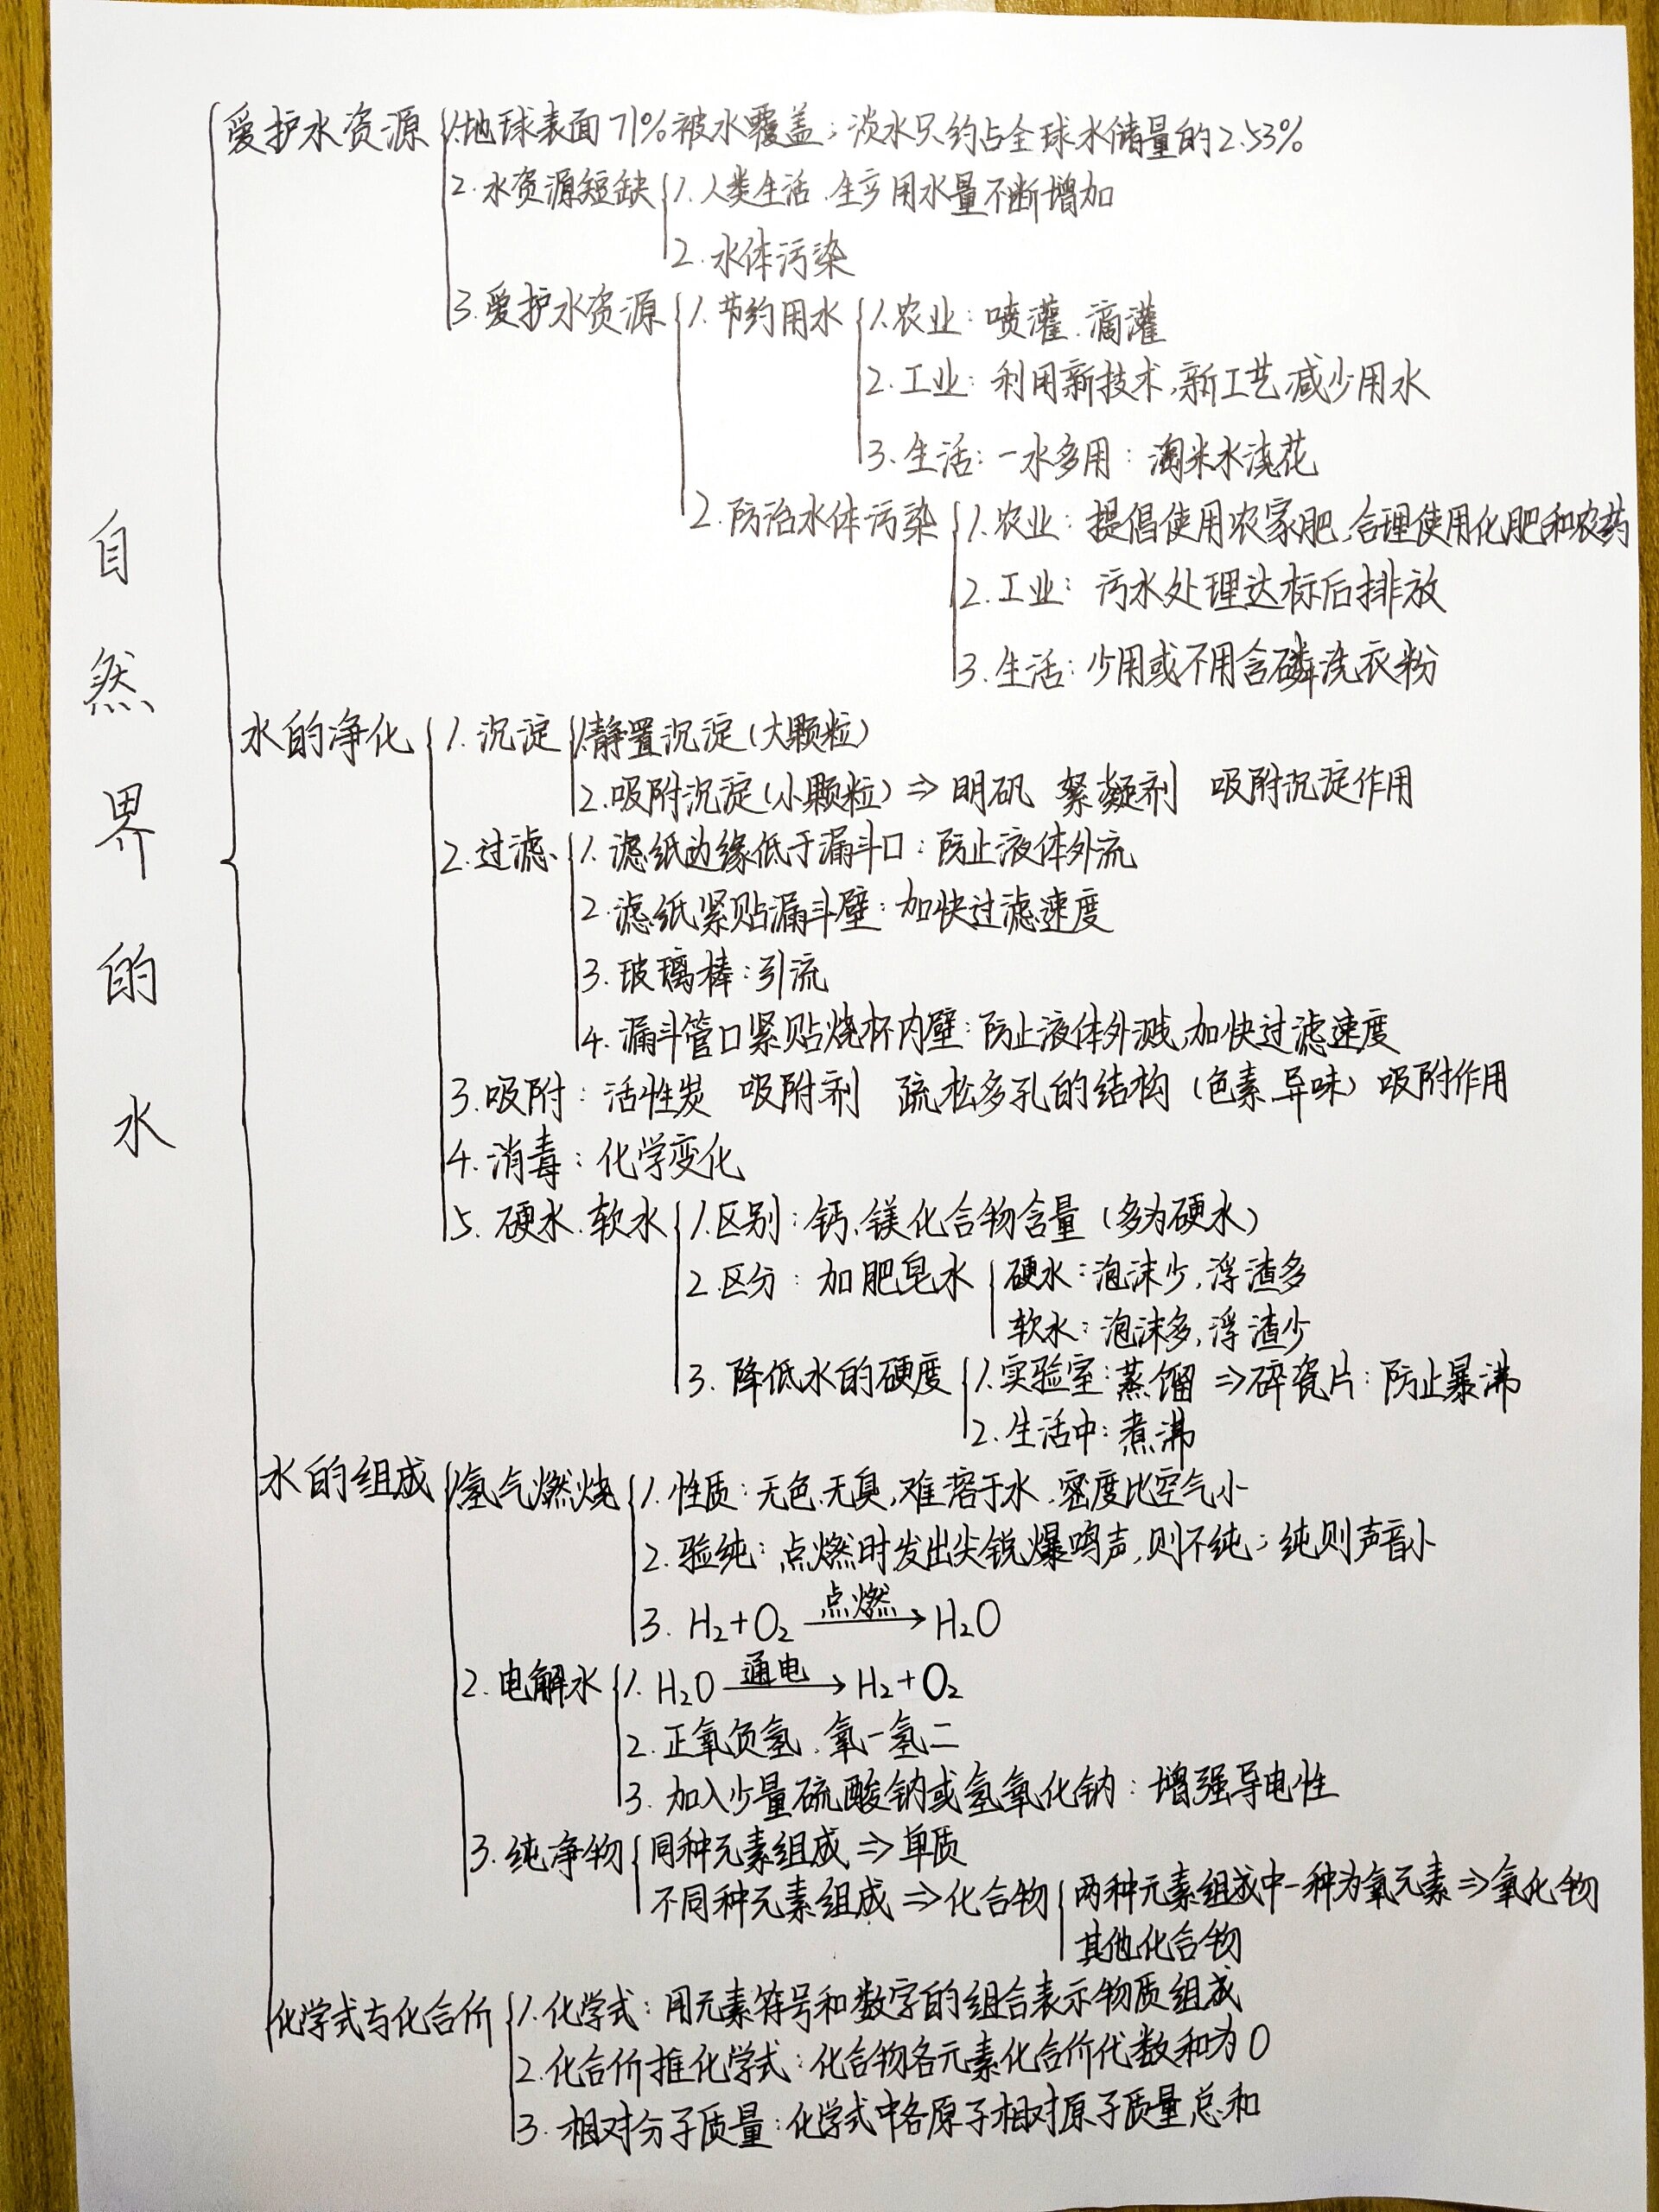 自然界的水
爱护水资源 1.地球表面71%被水覆盖；淡水只约占全球水储量的2.53%
2.水资源短缺 1.人类生活、生产用水量不断增加
2.水体污染
3.爱护水资源 1.节约用水 1.农业：喷灌、滴灌
2.工业：利用新技术,新工艺减少用水
3.生活：一水多用：淘米水浇花
2.防治水体污染 1.农业：提倡使用农家肥,合理使用化肥和农药
2.工业：污水处理达标后排放
3.生活：少用或不用含磷洗衣粉
水的净化 1.沉淀 1.静置沉淀(大颗粒)
2.吸附沉淀(小颗粒)⇒明矾 絮凝剂 吸附沉淀作用
2.过滤 1.滤纸边缘低于漏斗口：防止液体外流
2.滤纸紧贴漏斗壁：加快过滤速度
3.玻璃棒：引流
4.漏斗管口紧贴烧杯内壁：防止液体外溅,加快过滤速度
3.吸附：活性炭 吸附剂 疏松多孔的结构(色素、异味)吸附作用
4.消毒：化学变化
5.硬水、软水 1.区别：钙、镁化合物含量(多为硬水)
2.区分：加肥皂水 硬水：泡沫少,浮渣多
软水：泡沫多,浮渣少
3.降低水的硬度 1.实验室：蒸馏⇒碎瓷片：防止暴沸
2.生活中：煮沸
水的组成 1.氢气燃烧 1.性质：无色、无臭,难溶于水、密度比空气小
2.验纯：点燃时发出尖锐爆鸣声,则不纯；纯则声音小
3. H₂+O₂ 点燃→ H₂O
2.电解水 1. H₂O 通电→ H₂+O₂
2.正氧负氢、氧一氢二
3.加入少量硫酸钠或氢氧化钠：增强导电性
3.纯净物 同种元素组成⇒单质
不同种元素组成⇒化合物 两种元素组成中一种为氧元素⇒氧化物
其他化合物
化学式与化合价 1.化学式：用元素符号和数字的组合表示物质组成
2.化合价推化学式：化合物各元素化合价代数和为0
3.相对分子质量：化学式中各原子相对原子质量总和